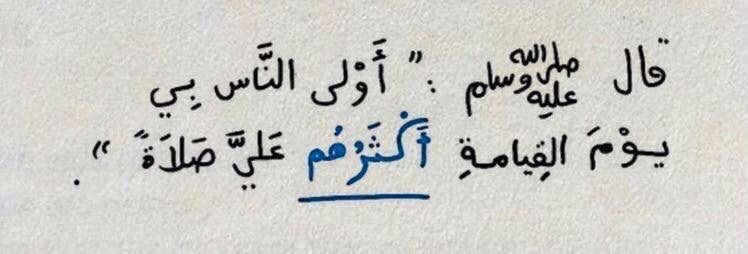 قال ﷺ : " أَوْلى النَّاس بِي
يوْمَ القِيامةِ أَكْثَرُهُم عَليَّ صَلاَةً ".